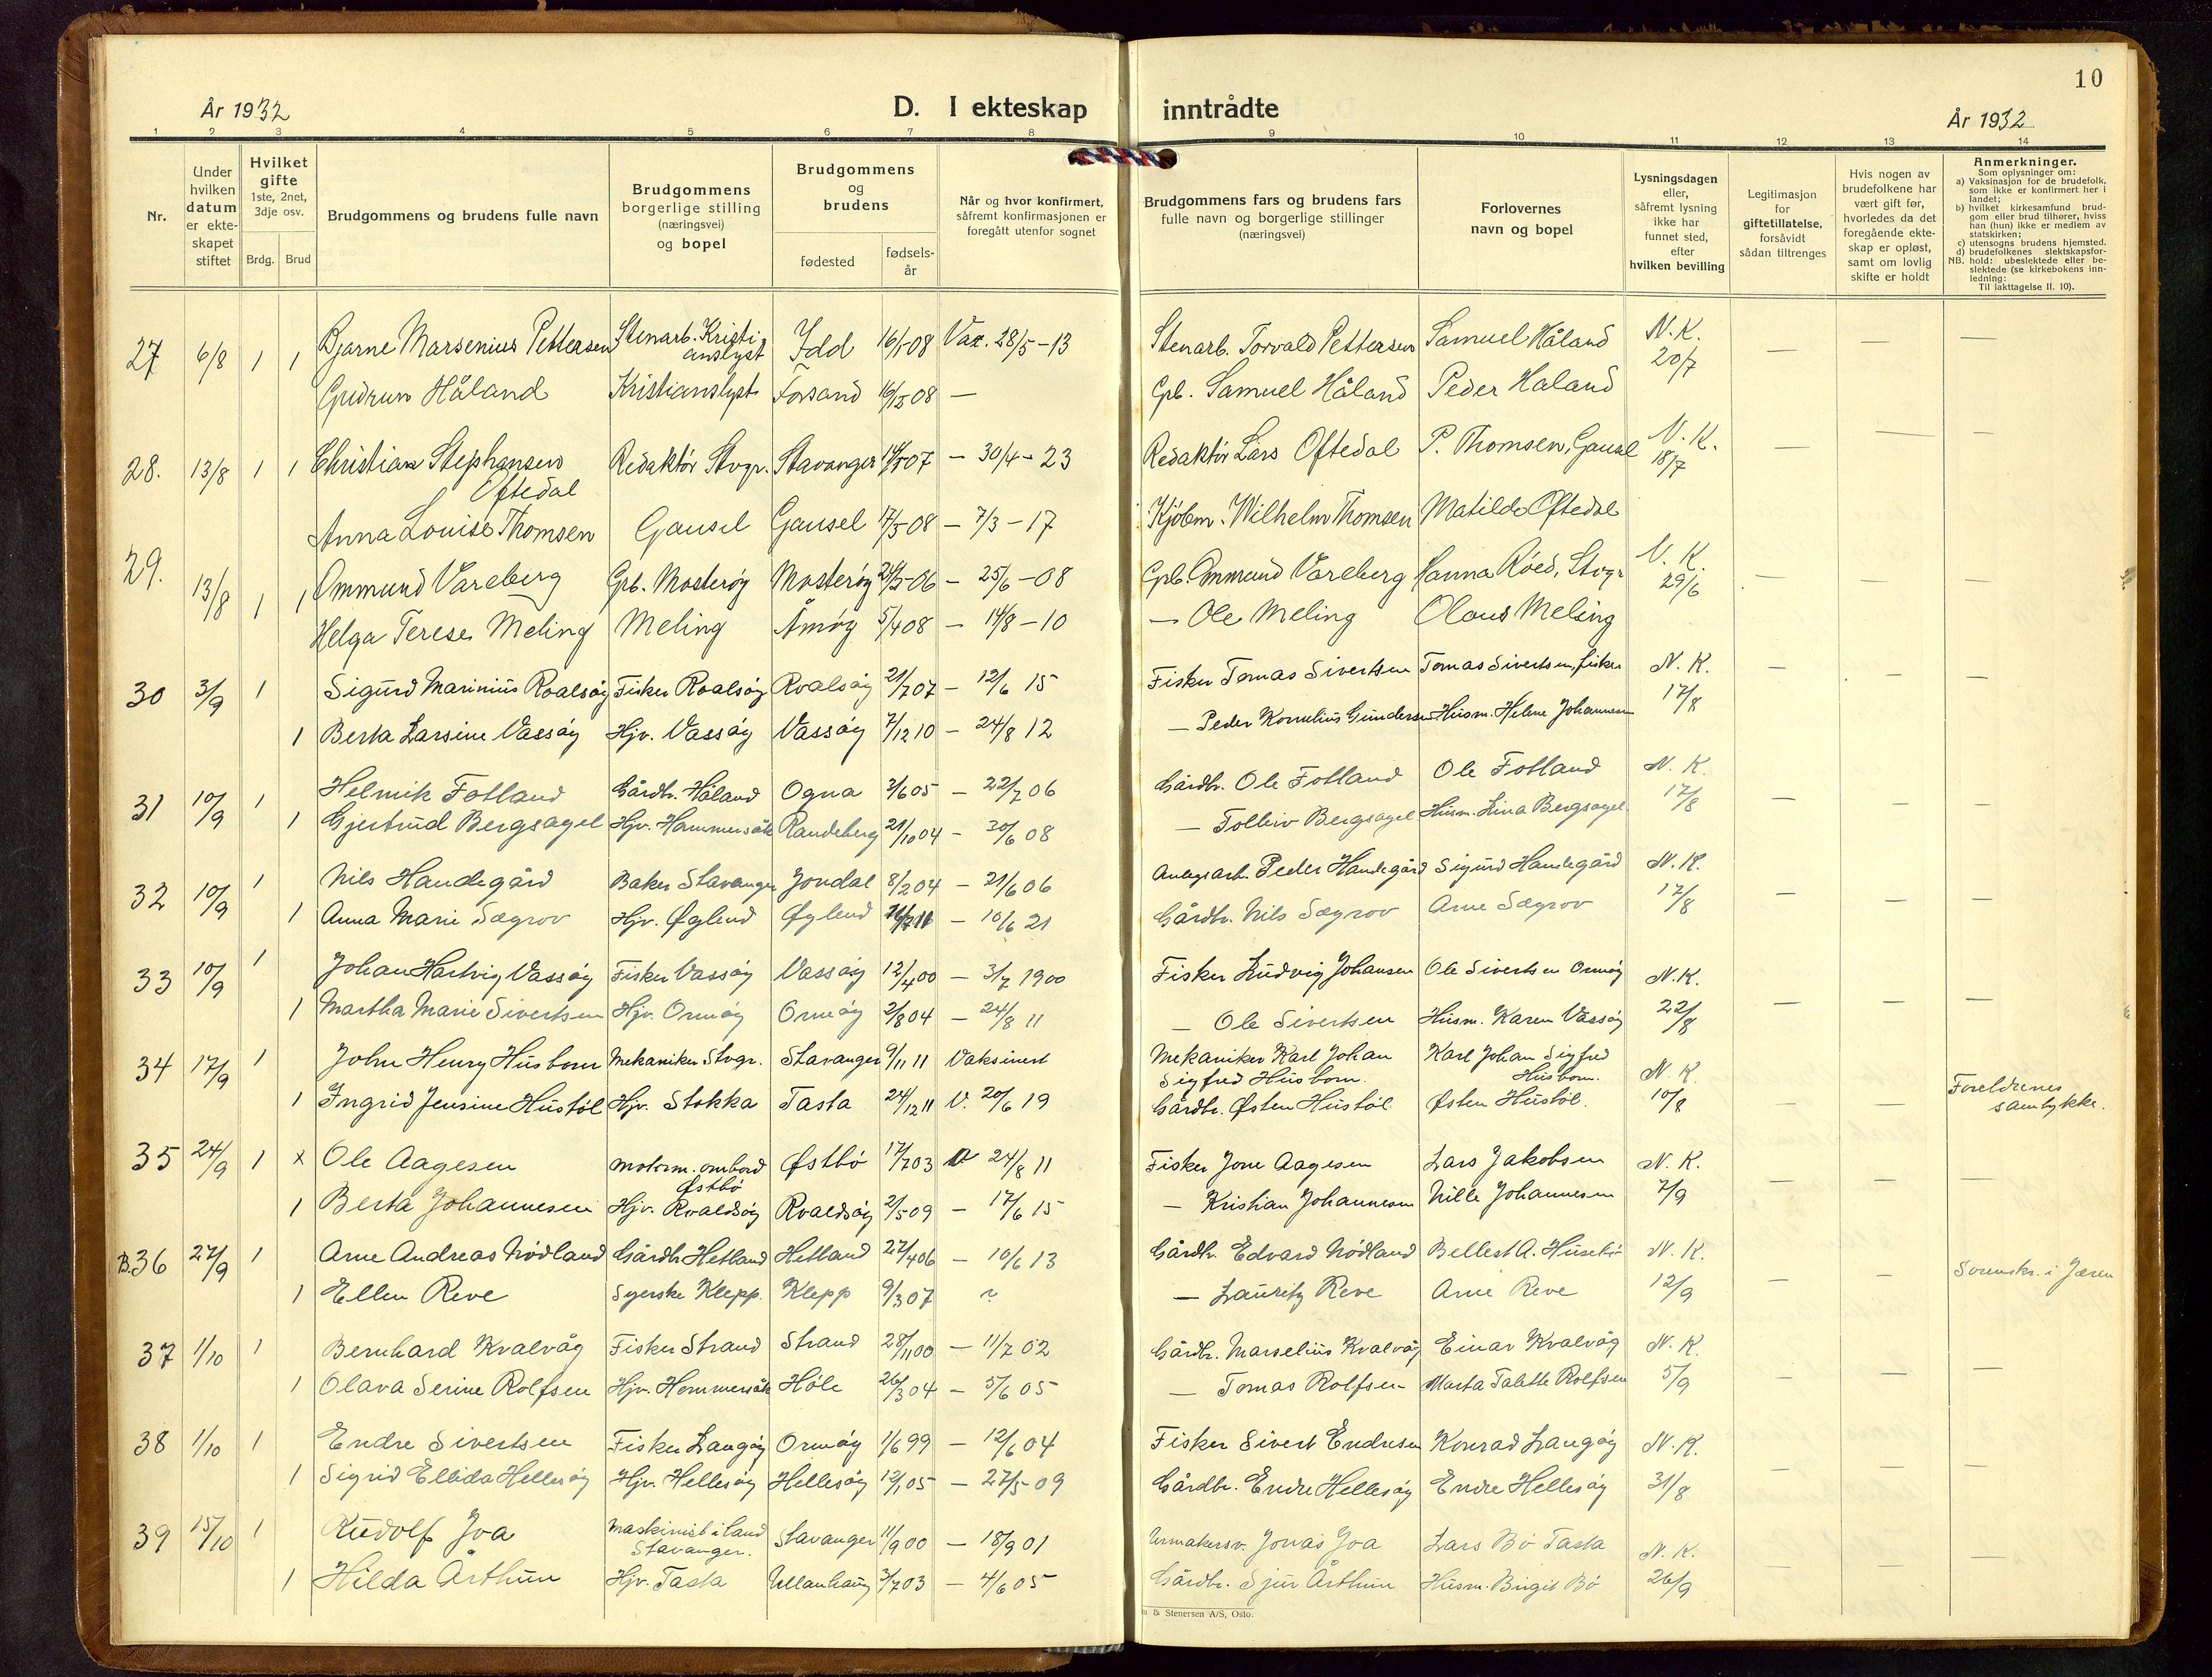 10
År 1932
D. I ekteskap inntrådte
År 1932
1 2 3 4 5 6 7 8 9 10 11 12 13 14
Nr.
Under
hvilken
datum
er ekte-
skapet
stiftet
Hvilket
gifte
1ste, 2net,
3dje osv.
Brdg. Brud
Brudgommens og brudens fulle navn
Brudgommens
borgerlige stilling
(næringsvei)
og bopel
Brudgommens
og
brudens
fødested
fødsels-
år
Når og hvor konfirmert,
såfremt konfirmasjonen er
foregått utenfor sognet
Brudgommens fars og brudens fars
fulle navn og borgerlige stillinger
(næringsvei)
Forlovernes
navn og bopel
Lysningsdagen
eller,
såfremt lysning
ikke har
funnet sted,
efter
hvilken bevilling
Legitimasjon
for
giftetillatelse,
forsåvidt
sådan tiltrenges
Hvis nogen av
brudefolkene har
vært gift før,
hvorledes da det
foregående ekte-
skap er opløst,
samt om lovlig
skifte er holdt
Anmerkninger.
Som oplysninger om:
a) Vaksinasjon for de brudefolk,
som ikke er konfirmert her i
landet;
b) hvilket kirkesamfund brud-
gom eller brud tilhører, hviss
han (hun) ikke er medlem av
statskirken;
c) utensogns brudens hjemsted.
d) brudefolkenes slektskapsfor-
NB. hold: ubeslektede eller be-
slektede (se kirkebokens inn-
ledning:
Til iakttagelse II. 10).
27 6/8 1 1 Bjarne Marsenius Pettersen Stenarb. Kristi Idd 16/1-08 Vax. 28/5-13 Stenarb. Torvald Pettersen Samuel Håland N. K. — — —
anslyst 20/7
Gudrun Håland Kristianslyst Forsand 16/12 08 — Grb. Samuel Håland Peder Haland
28. 13/8 1 1 Christian Stephansen Redaktør Stvgr. Stavanger 07 — 30/4-23 Redaktør Lars Oftedal P. Thomsen, Gausel N. K. — — —
Oftedal 18/7
Anna Louise Thomsen Gausel Gausel 17/5-08 — 7/3-17 Kjøbm. Wilhelm Thomsen Matilde Oftedal
29. 13/8 1 1 Ommund Vareberg Grb. Mosterøy Mosterøy 06 — 25/6-08 Grb. Ommund Vareberg Hanna Røed, Stvgr N. K. — —
29/6
Helga Terese Meling Meling Åmøy 5/4 08 — 14/8-10 — Ole Meling Olaus Meling
30 3/9 1 Sigurd Marinius Roalsøy Fisker Roalsøy Roalsøy 21/7 07 — 12/6 15 Fisker Tomas Sivertsen Tomas Sivertsen, fisker N. K. — — —
1 Berta Larsine Vassøy Hjv. Vassøy Vassøy 7/12 10 — 24/8 12 — Peder Kornelius Gundersen Husm. Helene Johannesen 17/8
31 10/9 1 Helmik Fotland Gårdbr. Håland Ogna 3/6 05 — 22/7 06 Gårdbr. Ole Fotland Ole Fotland N. K. — — —
1 Gjertrud Bergsagel Hjv. Hammersåk Randeberg 21/10 04 — 30/6 08 — Tolleiv Bergsagel Husm. Lina Bergsagel 17/8
32 10/9 1 Nils Handegård Baker Stavanger Jondal 8/2 04 — 21/6 06 Anlegsarb. Peder Handegård Sigurd Handegård N. K. — — —
1 Anna Marie Sægrov Hjv. Øglend Øglend — 10/6 21 Gårdbr. Nils Sægrov Arne Sægrov 17/8
33 10/9 1 Johan Hartvig Vassøy Fisker Vassøy Vassøy 12/4 00 — 3/7 1900 Fisker Ludvig Johansen Ole Sivertsen Ormøy N. K. — — —
1 Martha Marie Sivertsen Hjv. Ormøy Ormøy 2/8 04 — 24/8 11 — Ole Sivertsen Husm. Karen Vassøy 22/8
34 17/9 1 John Henry Husborn Mekaniker Stvgr. Stavanger 9/11 11 Vaksinert Mekaniker Karl Johan Karl Johan Sigfred N. K.
Sigfred Husborn. Husborn.
1 Ingrid Jensine Hustøl Hjv. Stokka Tasta 24/12 11 V. 20/6 19 Gårdbr. Østen Hustøl Østen Hustøl 10/8 — — Foreldrenes
samtykke.
35 24/9 1 x Ole Aagesen Motorm. ombord Østbø 17/7 03 V 24/8 11 Fisker Jone Aagesen Lars Jakobsen N. K. — — —
Østbø
1 Berta Johannesen Hjv. Roaldsøy Roaldsøy 2/5 09 — 17/6 15 — Kristian Johannesen Nille Johannesen 7/9
B. 36 27/9 1 Arne Andreas Nødland Gårdbr. Hetland Hetland 27/4 06 — 10/6 13 Gårdbr. Edvard Nødland Bellest A. Husebø N. K. — — Sorenskr. i Jæren
1 Ellen Reve Syerske Klepp. Klepp 9/3 07 ? — Lauritz Reve Arne Reve 12/9
37 1/10 1 Bernhard Kvalvåg Fisker Strand Strand 28/11 00 — 11/7 02 Gårdbr. Marselius Kvalvåg Einar Kvalvåg N. K. — — —
1 Olava Serine Rolfsen Hjv. Hommersåk Høle 26/3 04 — 5/6 05 — Tomas Rolfsen Marta Talette Rolfsen 5/9
38 1/10 1 Endre Sivertsen Fisker Langøy Ormøy 1/6 99 — 12/6 04 Fisker Sivert Endresen Konrad Langøy N. K. — — —
1 Sigrid Ellida Hellesøy Hjv. Hellesøy Hellesøy 12/1 05 — 27/5 09 Gårdbr. Endre Hellesøy Endre Hellesøy 31/8
39 15/10 1 Rudolf Joa Maskinist i land Stavanger 11/9 00 — 18/9 01 Urmakersv. Jonas Joa Lars Bø Tasta N. K. — — —
Stavanger.
1 Hilda Årthun Hjv. Tasta Ullanhaug 3/7 03 — 4/6 05 Gårdbr. Sjur Årthun Husm. Birgit Bø 26/9
& Stenersen A/S, Oslo.